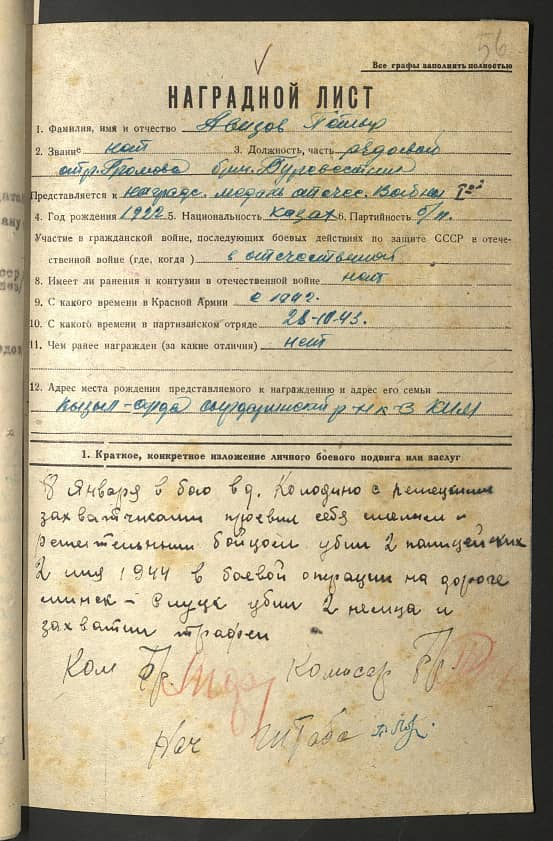 56
Все графы заполнять полностью
НАГРАДНОЙ ЛИСТ
1. Фамилия, имя и отчество Авизов
2. Звание нет 3. Должность, часть рядовой
отр. Громова бриг. Буревестник
Представляется к наградс. медаль отечес. Войны
4. Год рождения 1922 5. Национальность казах 6. Партийность б/п.
Участие в гражданской войне, последующих боевых действиях по защите СССР в отече-
ственной войне (где, когда ) в отечественной
8. Имеет ли ранения и контузии в отечественной войне нет
9. С какого времени в Красной Армии с 1942.
10. С какого времени в партизанском отряде 28-10-43.
11. Чем ранее награжден (за какие отличия) нет
12. Адрес места рождения представляемого к награждению и адрес его семьи
Кызыл-Орда сырдаринский р-н к-з КИМ
1. Краткое, конкретное изложение личного боевого подвига или заслуг
8 Января в бою в д. Колодино с немецкими
захватчиками проевил себя смелым и
решительным бойцом убил 2 полицейских
2 мая 1944 в боевой операции на дороге
минск - Слуцк убил 2 немца и
захватил трофеи
Ком Бр. Комисар Бр.
Нач Штаба